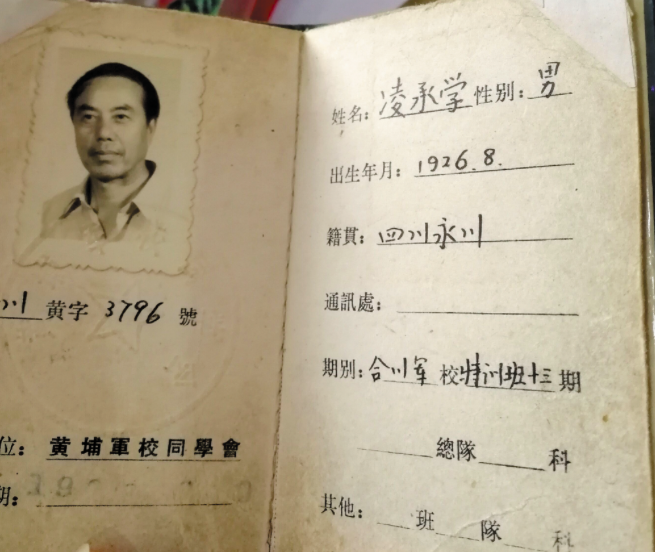 川 黄字 3796 號
位: 黄埔軍校同學會
期:
姓名: 凌承学 性别: 男
出生年月: 1926.8.
籍貫: 四川永川
通訊處:
期别: 合川军校特训班十三期
總隊 科
其他: 班 隊 科